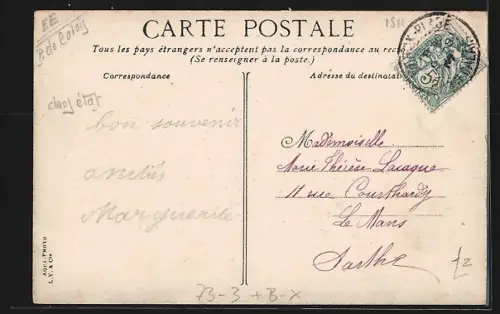 EE
P. de Calais
1511
CARTE POSTALE
Tous les pays étrangers n'acceptent pas la correspondance au rec
(Se renseigner à la poste.)
Correspondance
Adresse du destinatai
5c
bon souvenir
amitiés
Marguerite
Mademoiselle
Marie Thérèse
11 rue Courthardy
Le Mans
Sarthe
AQUA-PHOTO
L.V. & Cie
73-3 + B-X